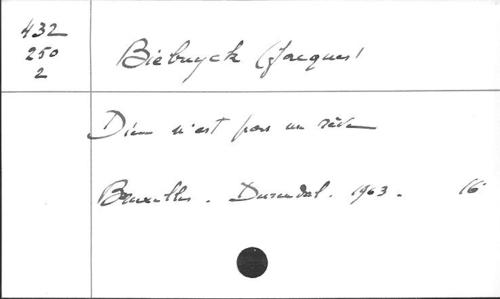 432
250
2
Biebuyck (Jacques)
Dieu n'est pas un rêve
Bruxelles. Durendal. 1963. 16°